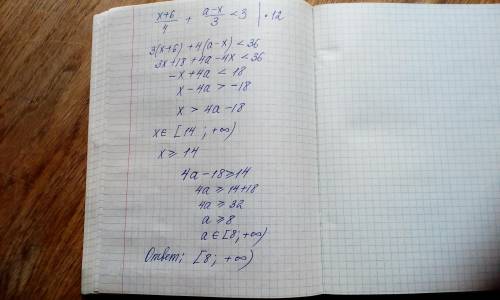 (x+6)/4 + (a-x)/3 < 3 | · 12
3(x+6) + 4(a-x) < 36
3x+18+4a-4x < 36
-x+4a < 18
x - 4a > -18
x > 4a-18
x ∈ [14 ; +∞)
x ⩾ 14
4a-18 ⩾ 14
4a ⩾ 14+18
4a ⩾ 32
a ⩾ 8
a ∈ [8; +∞)
Ответ: [8; +∞)